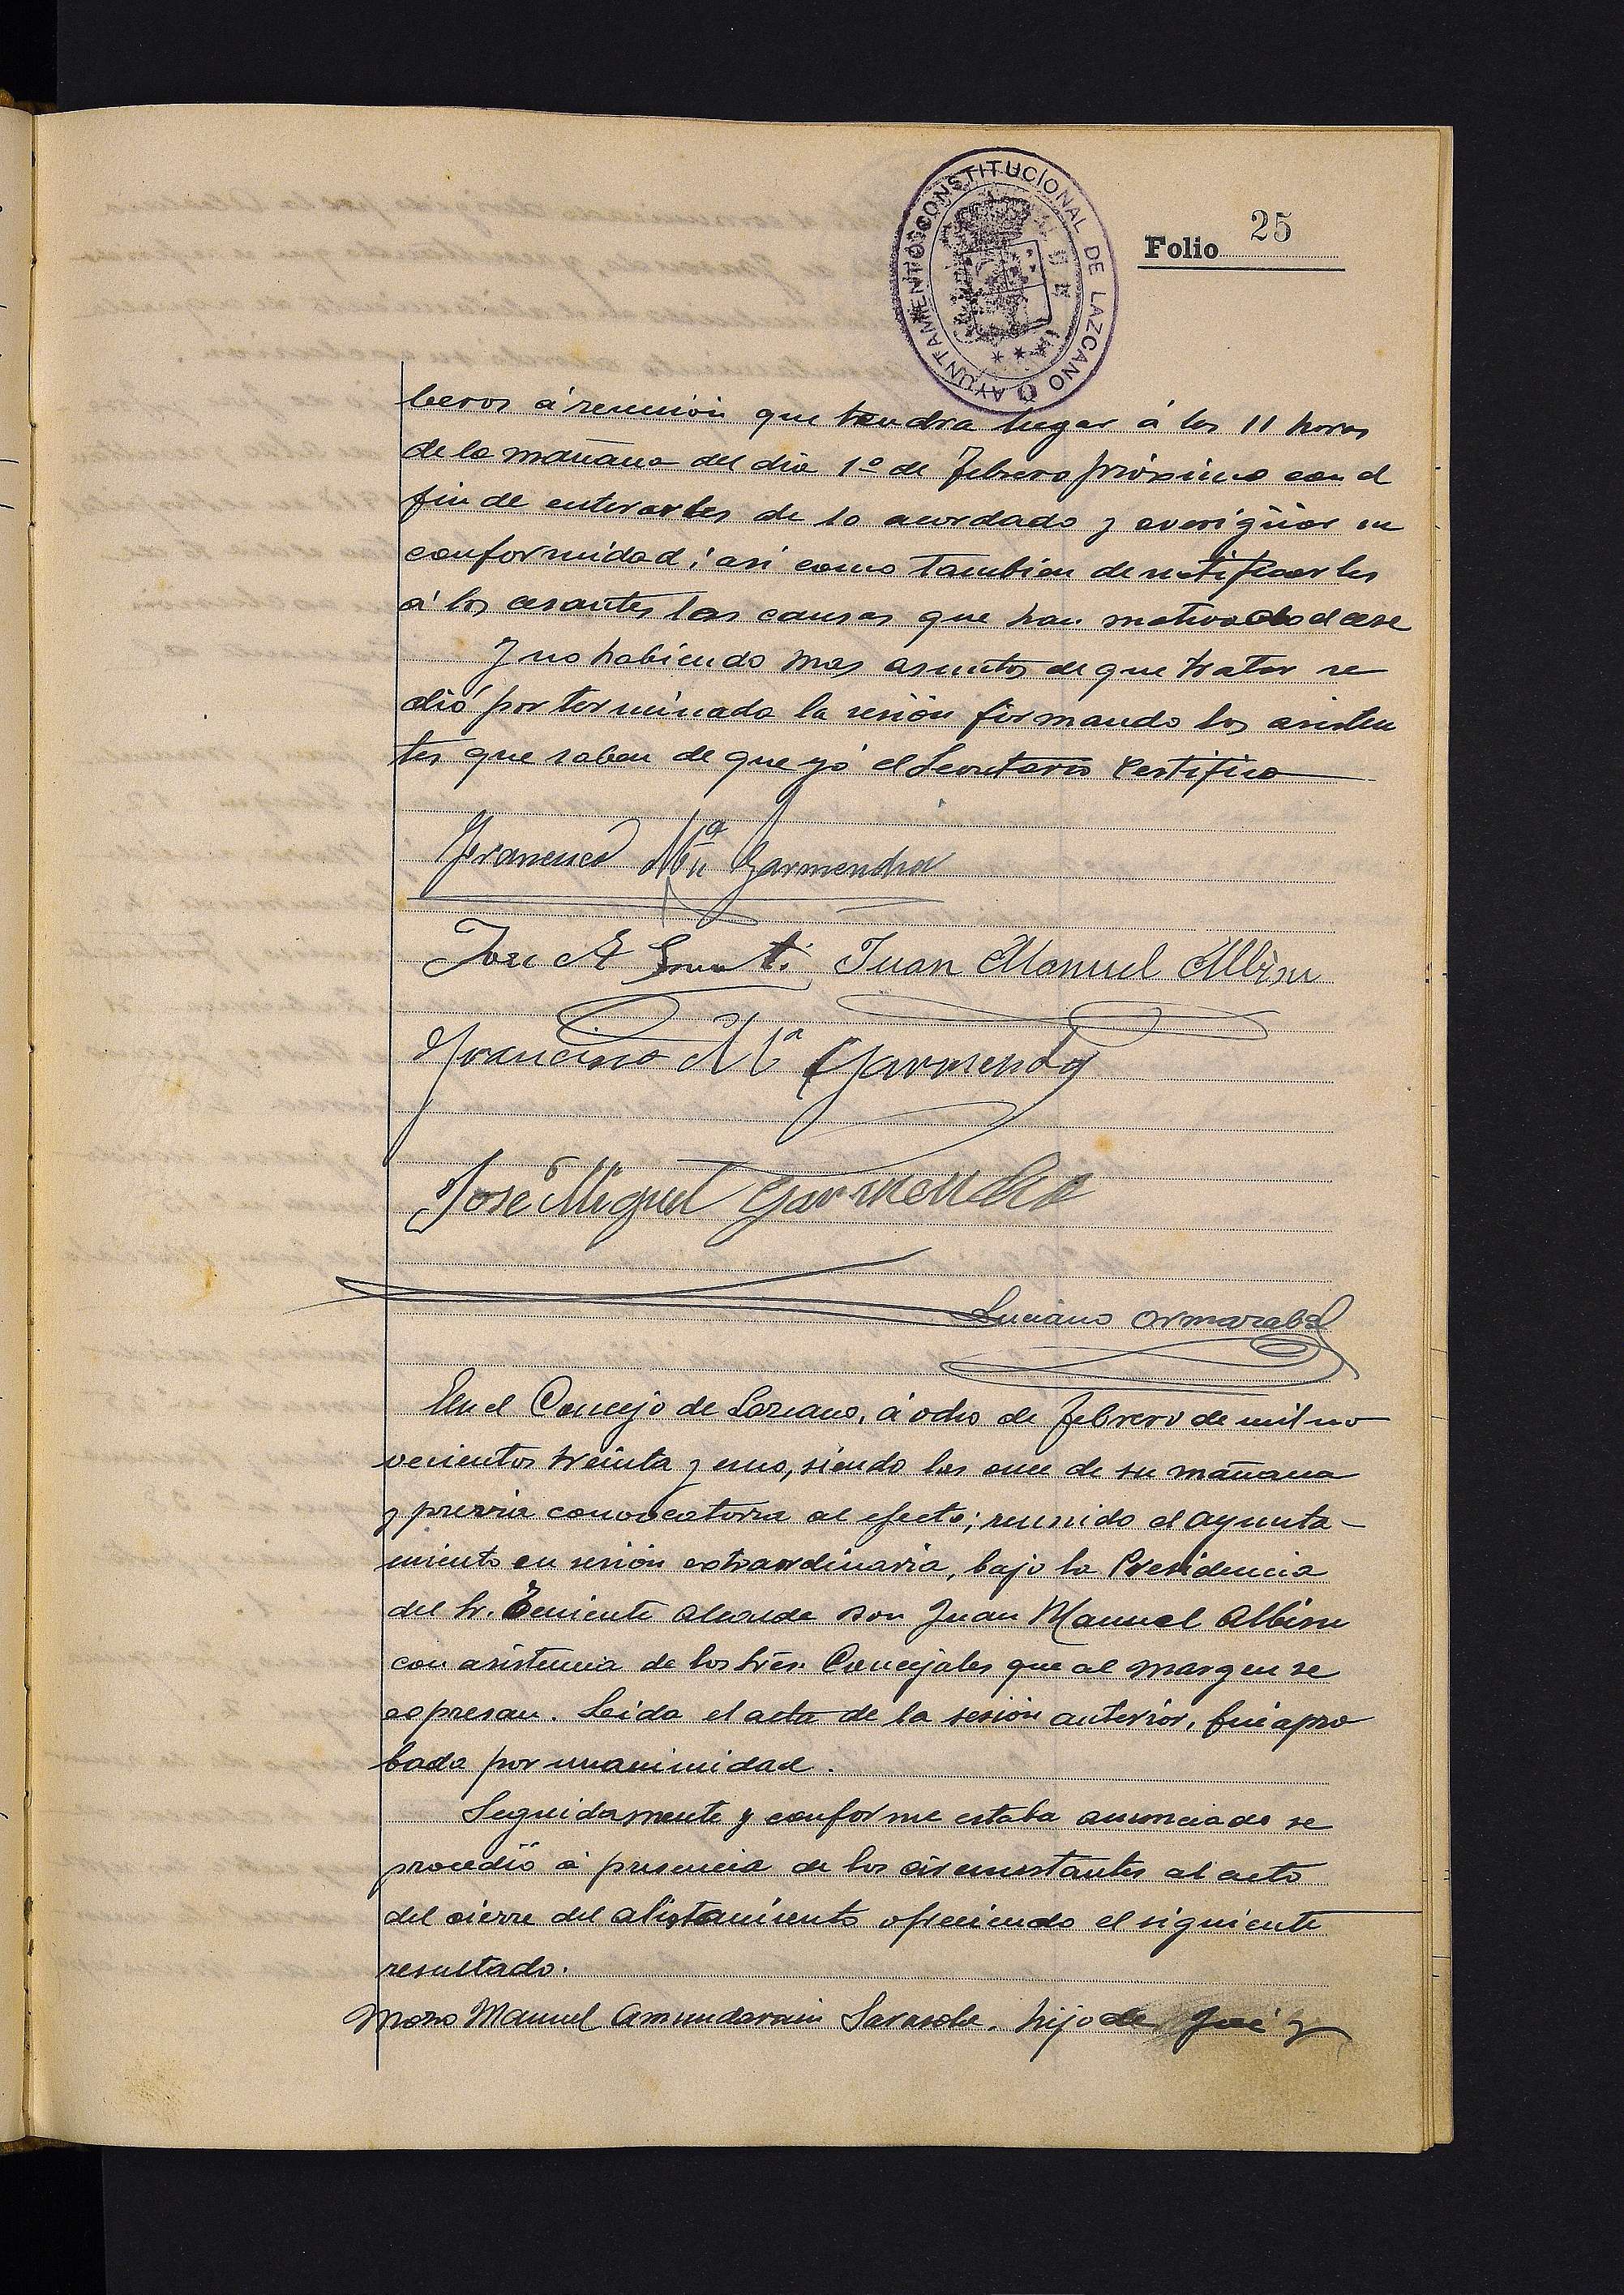 AYUNTAMIENTO CONSTITUCIONAL DE LAZCANO
Folio 25
beros á reunión que tendra lugar á las 11 horas
de la mañana del dia 1º de febrero próximo con el
fin de enterarles de lo acordado y averigüar su
conformidad; asi como tambien de notificarles
á los cesantes las causas que han motivado el cese
Y no habiendo mas asuntos de que tratar se
dió por terminada la sesión firmando los asisten
tes que saben de que yó el Secretario Certifico
Francisco Mª Garmendia
José A Juan Manuel Albisu
Francisco Mª Garmendia
José Miguel Garmendia
Luciano Ormazabal
En el Concejo de Lazcano, á ocho de febrero de mil no
vecientos treinta y uno, siendo las once de su mañana
y previa convocatoria al efecto; reunido el ayunta-
miento en sesión extraordinaria, bajo la Presidencia
del Sr. Teniente alcalde Don Juan Manuel Albisu
con asistencia de los Sres. Concejales que al margen se
expresan. Leida el acta de la sesión anterior, fué apro
bada por unanimidad.
Seguidamente y conforme estaba anunciado se
procedió á presencia de los circunstantes al acto
del cierre del alistamiento ofreciendo el siguiente
resultado.
Mozo Manuel Amundarain Sarasola. hijo de José y